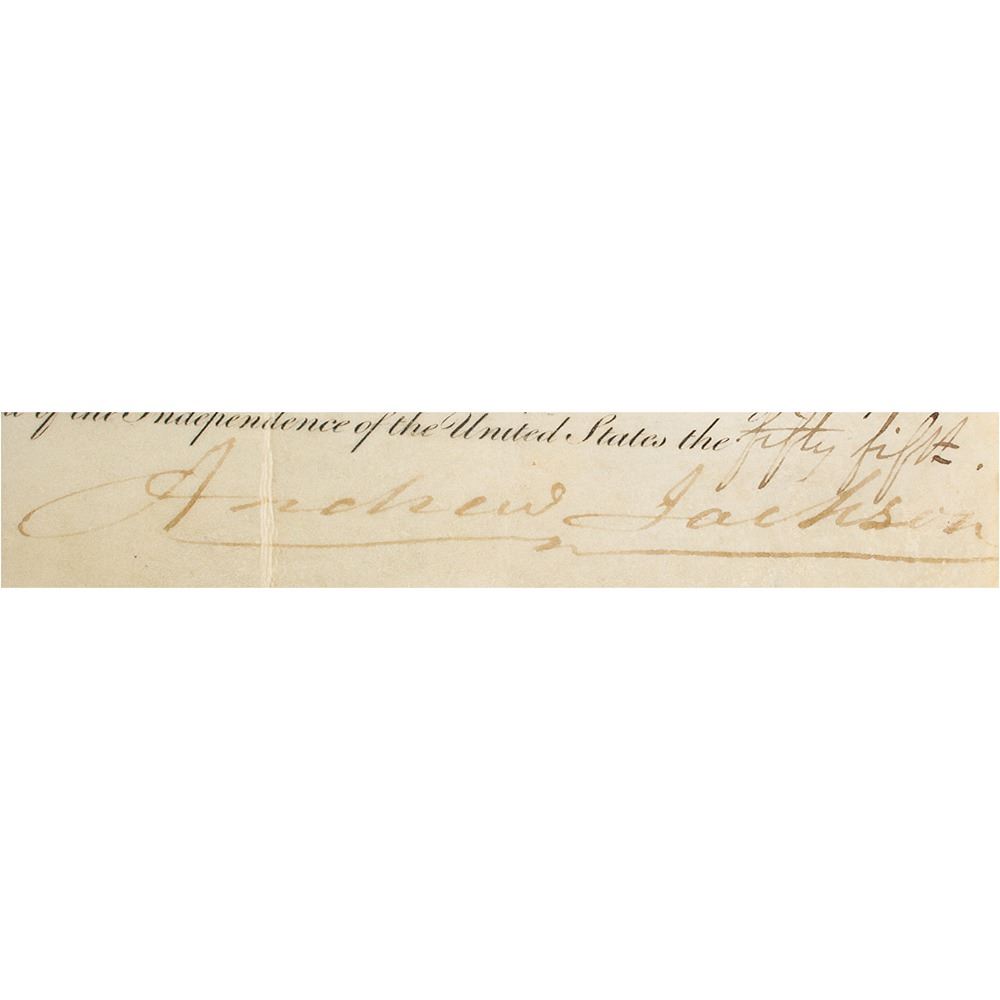 of the Independence of the United States the fifty fifth.
Andrew Jackson